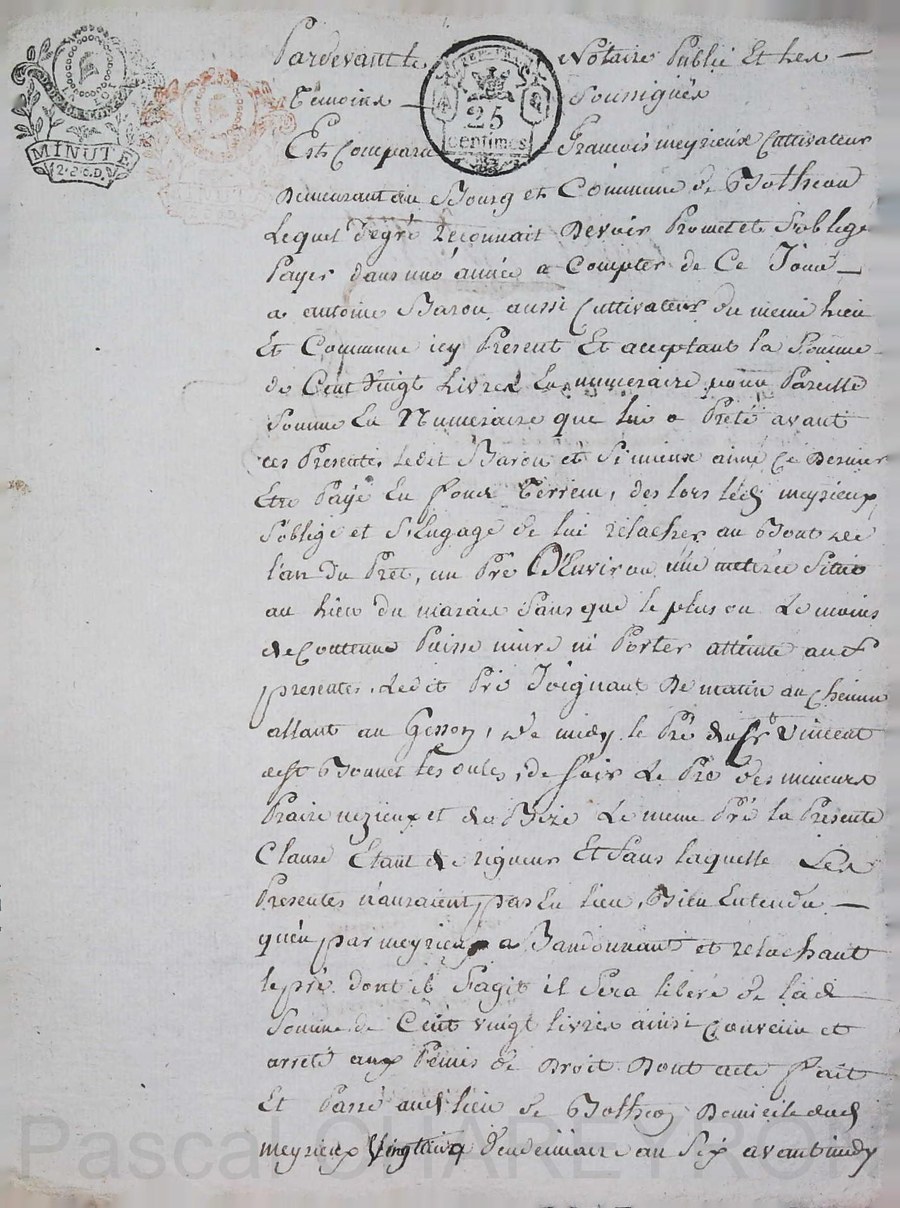 Pardevant le Notaire Public Et Les
Temoins Soussignés
MINUTE
2.S.C.D.
REP. FRA.
25
centimes
Est Comparu François meyrieux Cultivateur
Demeurant au Bourg et Commune de Botheon
Lequel degré reconnait Devoir Promet et Soblige
Payer dans une année a Compter de Ce Jour
a antoine Baron aussi Cultivateur du meme Lieu
Et Commune icy Present Et aceptant la Somme
de Cent Vingt Livres En numeraire pour Pareille
Somme En Numeraire que lui a Prété avant
ces Presentes Ledit Baron et Si mieux aime Ce Dernier
Etre Payé En fond Terrein, des lors led meyrieux
Soblige et S'Engage de lui relacher au Bout de
l'an du Pret, un Pré D'Environ une metérée Situé
au Lieu du marais Sans que le plus ou Le moins
de Contenue Puisse nuire ni Porter atteinte aux
presentes, Ledit Pré Joignant De matin au Chemin
allant au Gesson, de midy le Pré du Vincent
de St Bonnet les oules, de soir Le Pré des mineurs
Praire mezieux et de Bize Le meme Pré la Presente
Clause Etant de rigueur Et Sans laquelle Les
Presentes n'auraient pas Eu lieu, Bien Entendu
quen par meyrieux a Bandonnant et relachant
le pré dont il Sagit il Sera libéré de lad
Somme de Cent vingt livres ainsi Convenu et
arreté aux Peines de Droit Dont acte Fait
Et Passé aud lieu de Botheon Domicile dud
meyrieux Vendemiaire an Six avant midy
Pascal CHAREYRON